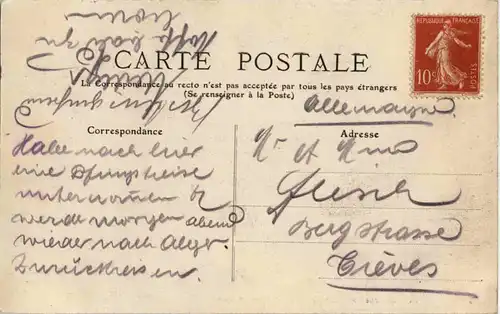 CARTE POSTALE
La Correspondance au recto n'est pas acceptée par tous les pays étrangers
(Se renseigner à la Poste)
REPUBLIQUE FRANÇAISE
10c
POSTES
Allemagne
Correspondance
Habe nach hier
eine Pfingstreise
unternommen &
werde morgen abend
wieder nach Alger
zurückreisen.
Adresse
Mr et Mme
Flesch
Bergstrasse
Trèves